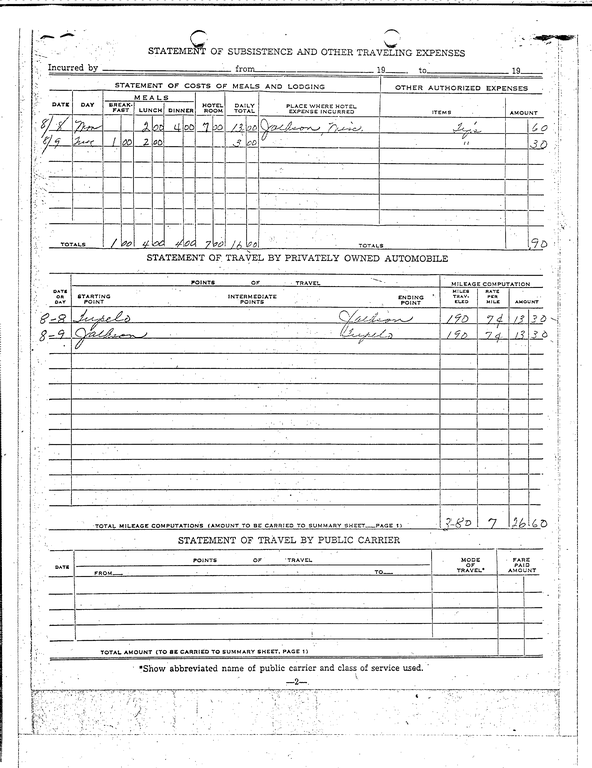 STATEMENT OF SUBSISTENCE AND OTHER TRAVELING EXPENSES
Incurred by from 19 to 19
STATEMENT OF COSTS OF MEALS AND LODGING OTHER AUTHORIZED EXPENSES
MEALS
DATE DAY BREAK-FAST LUNCH DINNER HOTEL ROOM DAILY TOTAL PLACE WHERE HOTEL EXPENSE INCURRED ITEMS AMOUNT
8/8 Mon 2 00 4 00 7 00 13 00 Jackson, Miss. 60
8/9 Tues 1 00 2 00 3 00 " 30
TOTALS 1 00 4 00 4 00 7 00 16 00 TOTALS 90
STATEMENT OF TRAVEL BY PRIVATELY OWNED AUTOMOBILE
POINTS OF TRAVEL MILEAGE COMPUTATION
DATE OR DAY STARTING POINT INTERMEDIATE POINTS ENDING POINT MILES TRAV-ELED RATE PER MILE AMOUNT
8-8 Tupelo Jackson 190 7¢ 13 30
8-9 Jackson Tupelo 190 7¢ 13 30
TOTAL MILEAGE COMPUTATIONS (AMOUNT TO BE CARRIED TO SUMMARY SHEET PAGE 1) 380 7 26 60
STATEMENT OF TRAVEL BY PUBLIC CARRIER
DATE POINTS OF TRAVEL MODE OF TRAVEL* FARE PAID AMOUNT
FROM TO
TOTAL AMOUNT (TO BE CARRIED TO SUMMARY SHEET, PAGE 1)
*Show abbreviated name of public carrier and class of service used.
—2—